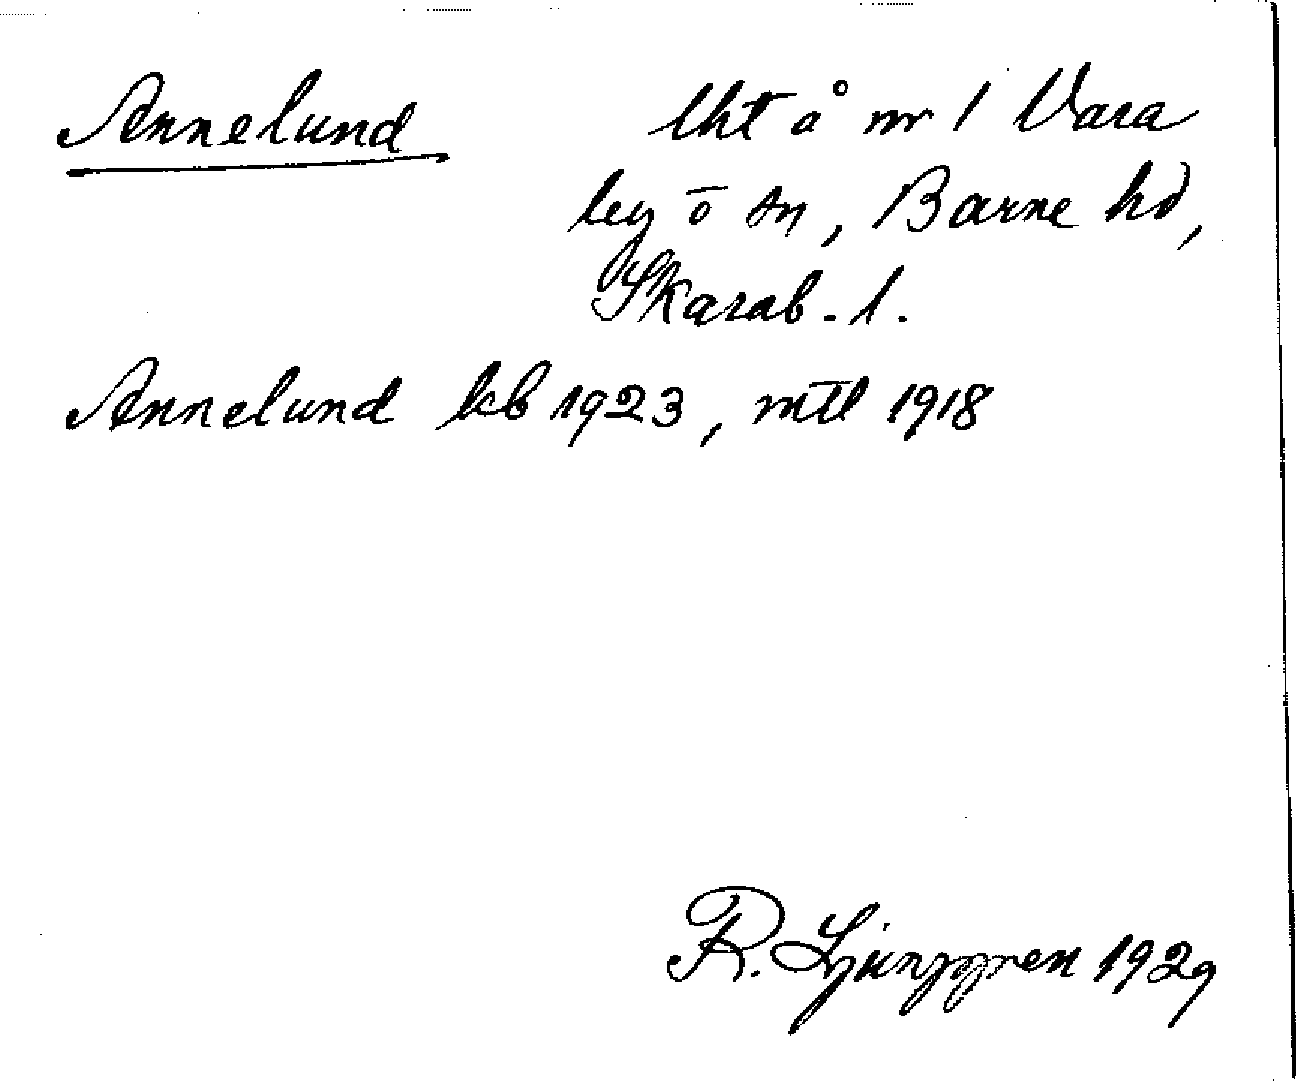 Annelund lht å nr 1 Vara
by o sn, Barne hd,
Skarab. l.
Annelund kb 1923, mtl 1918
R. Ljunggren 1929